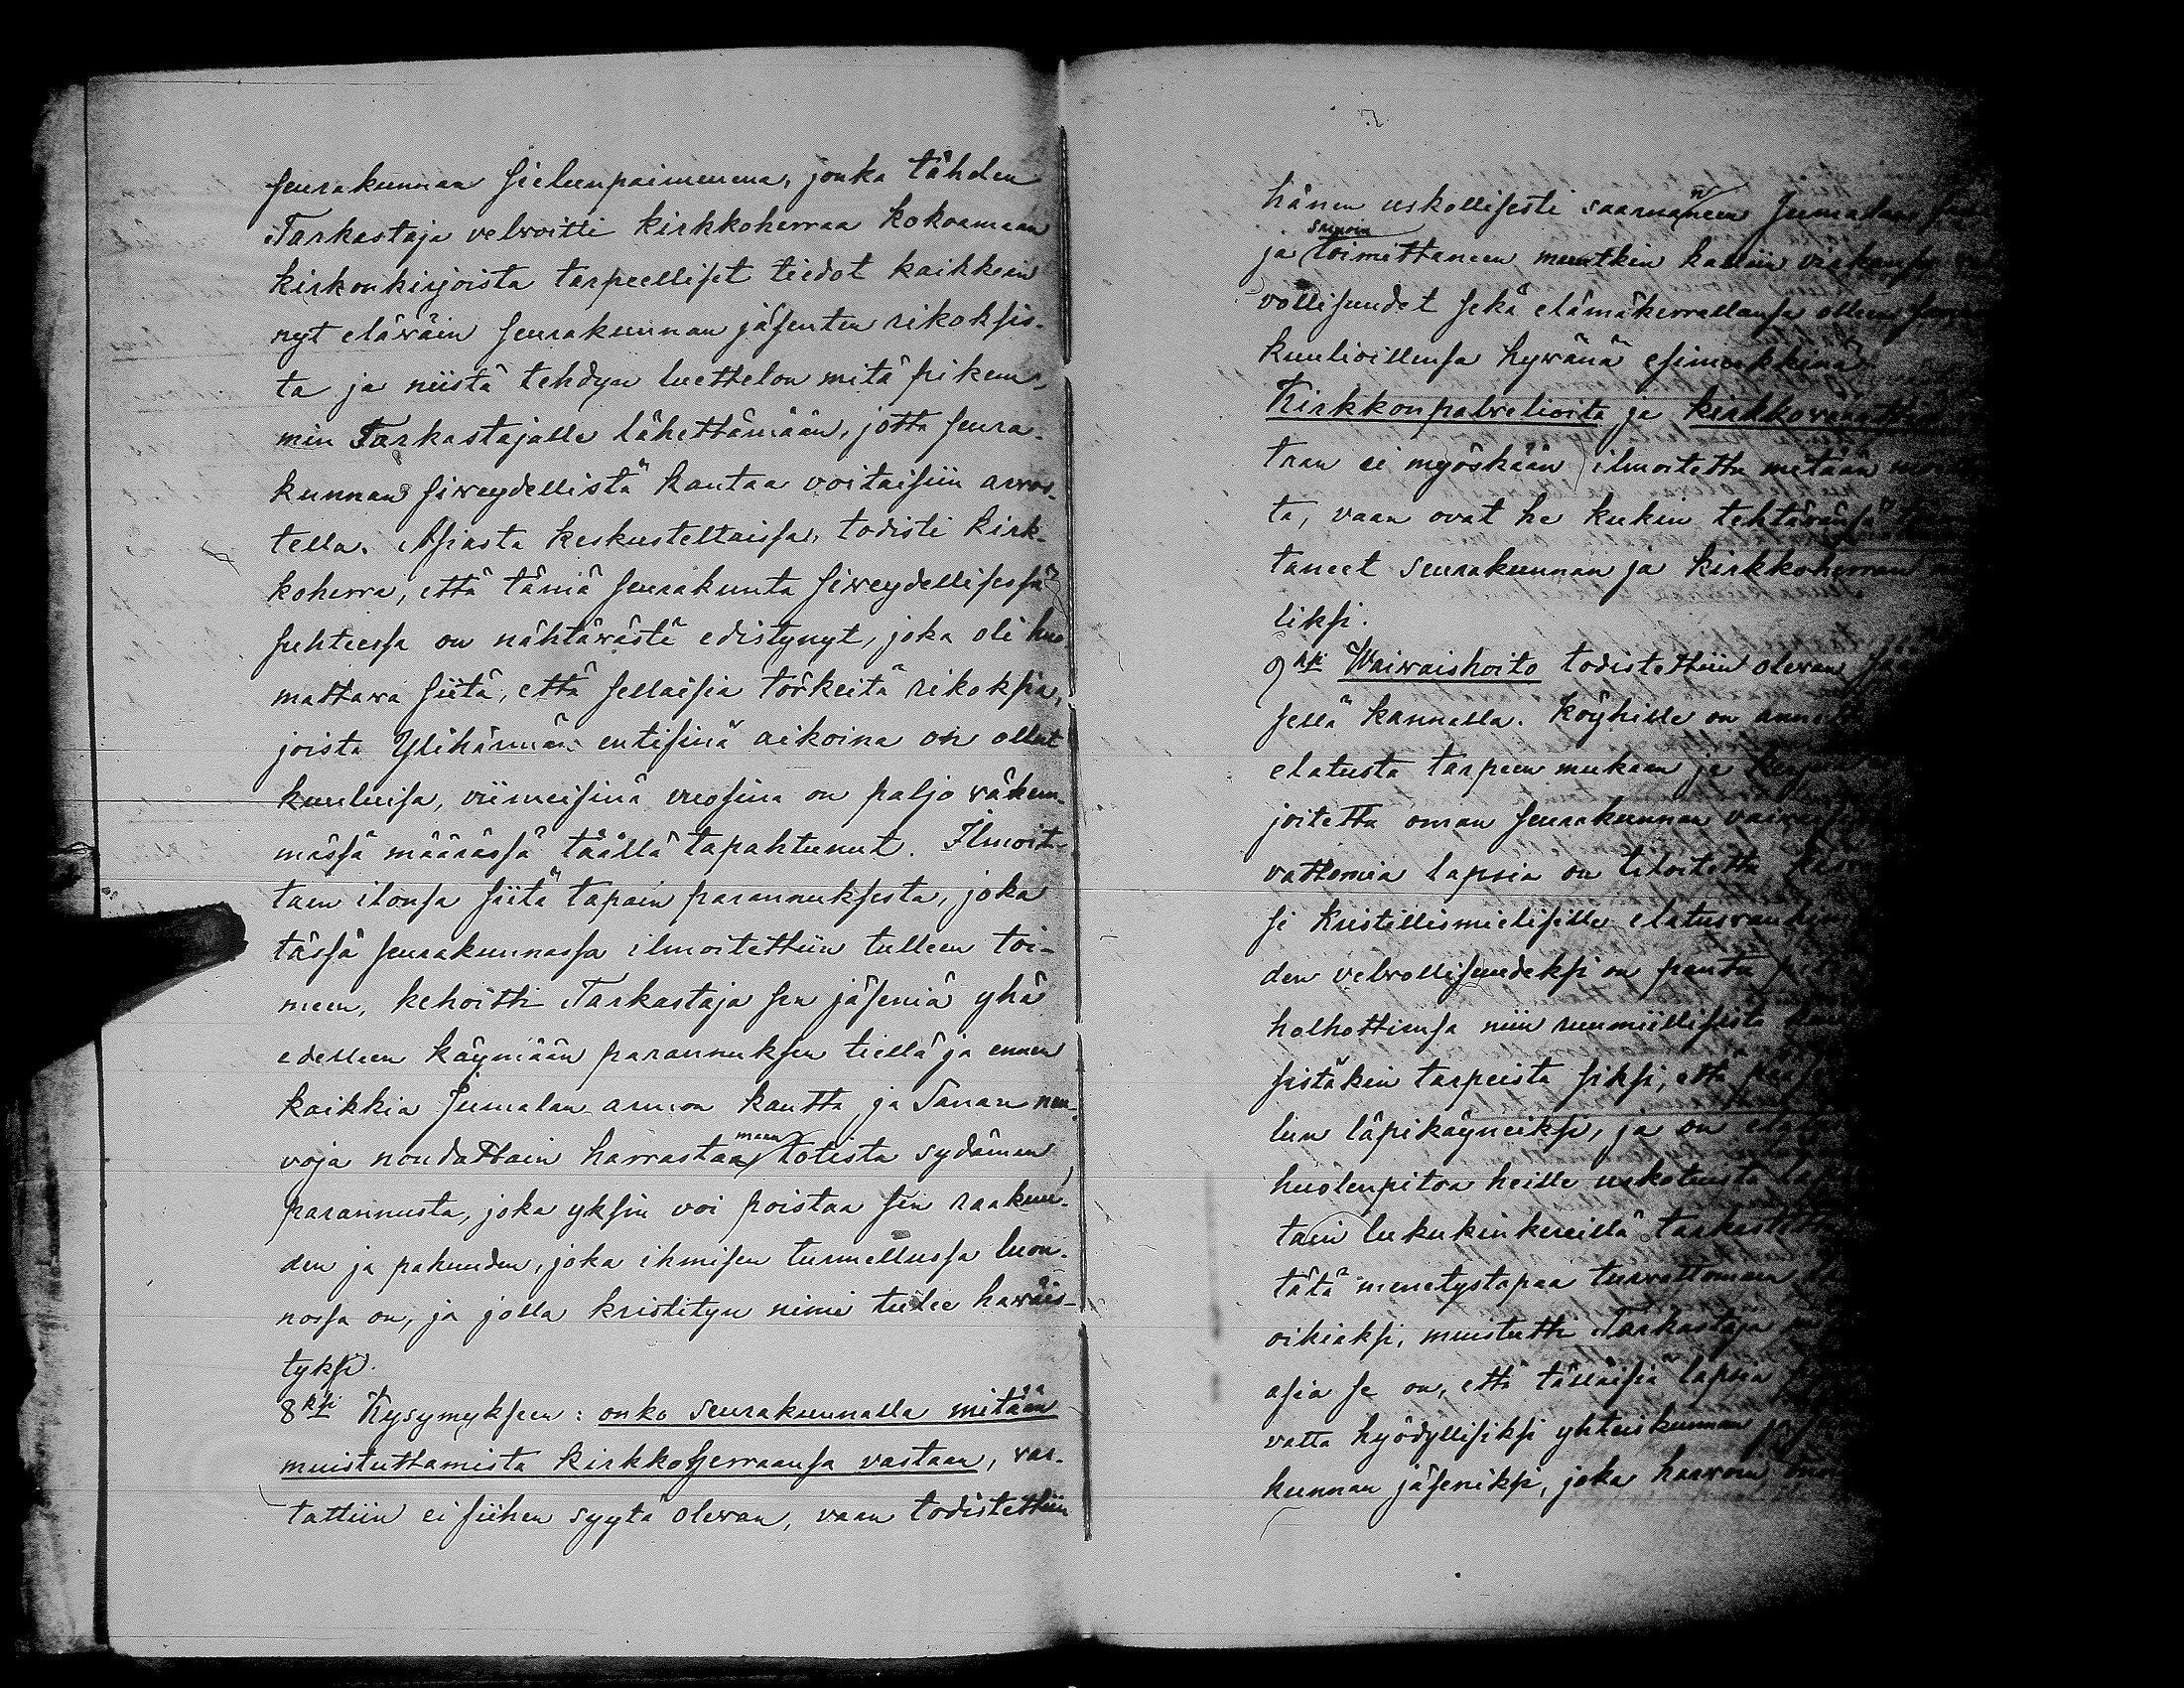 seurakunnan sielunpaimenena, jonka tähden
Tarkastaja velwoitti kirkkoherraa kokoamaan
kirkonkirjoista tarpeelliset tiedot kaikkein
nyt eläwäin seurakunnan jäsenten rikoksis-
ta ja niistä tehdyn luettelon mitä pikem-
min Tarkastajalle lähettämään, jotta seura-
kunnan siweydellistä kantaa voitaisiin arwos-
tella. Asiasta keskusteltaissa, todisti kirk-
koherra, että tämä seurakunta siweydellisessä
suhteessa on nähtäwästi edistynyt, joka oli huo
mattawa siitä, että sellaisia törkeitä rikoksia,
joista Ylihärmän entisinä aikoina on ollut
kuuluisa, viimeisinä vuosina on paljo vähem-
mässä määrässä täällä tapahtunut. Ilmoit-
taen ilonsa siitä tapain parannuksesta, joka
tässä seurakunnassa ilmoitettiin tulleen toi-
meen, kehoitti Tarkastaja sen jäseniä yhä
edelleen käymään parannuksen tiellä ja ennen
kaikkia Jumalan armon kautta ja Sanan neu-
voja noudattain harrastaa maan totista sydämen
parannusta, joka yksin voi poistaa sen raakuu-
den ja pahuuden, joka ihmisen turmellussa luon-
nossa on, ja jolla kristityn nimi tulee häwäis-
tyksi.
8ksi Kysymykseen: onko seurakunnalla mitään
muistuttamista kirkkoherraansa vastaan, vas-
tattiin ei siihen syytä olewan, vaan todistettiin
hänen uskollisesti saarnaneen Jumalan
ja samoin toimittaneen muutkin kalliin virkansa
vollisuudet sekä elämäkerrallansa olleen
kuulioillensa hywänä esimerkkinä.
Kirkkonpalvelioita ja kirkkoraa
traa ei myöskään ilmoitettu mitään
ta, vaan ovat he kukin tehtävänsä
taneet seurakunnan ja kirkkoherran
liksi.
9ksi Waiwaishoito todistettiin olewan
sellä kannalla. Köyhille on annettu
elatusta tarpeen mukaan ja
joitettu oman seurakunnan
vattomia lapsia on tiloitettu
si kristillismielisille elatuswan
den velwollisuudeksi on pantu
holhottiensa niin ruumiillisista
sistäkin tarpeista siksi, että
lun läpikäyneiksi, ja on
huolenpitoa heille uskotuista
tain lukukinkereillä tarkastettu
tätä menetystapaa turwattomain
oikiaksi, muistutti Tarkastaja
asia se on, että tällaisia lapsia
vatta hyödyllisiksi yhteiskunnan ja
kunnan jäseniksi, joka harwoin